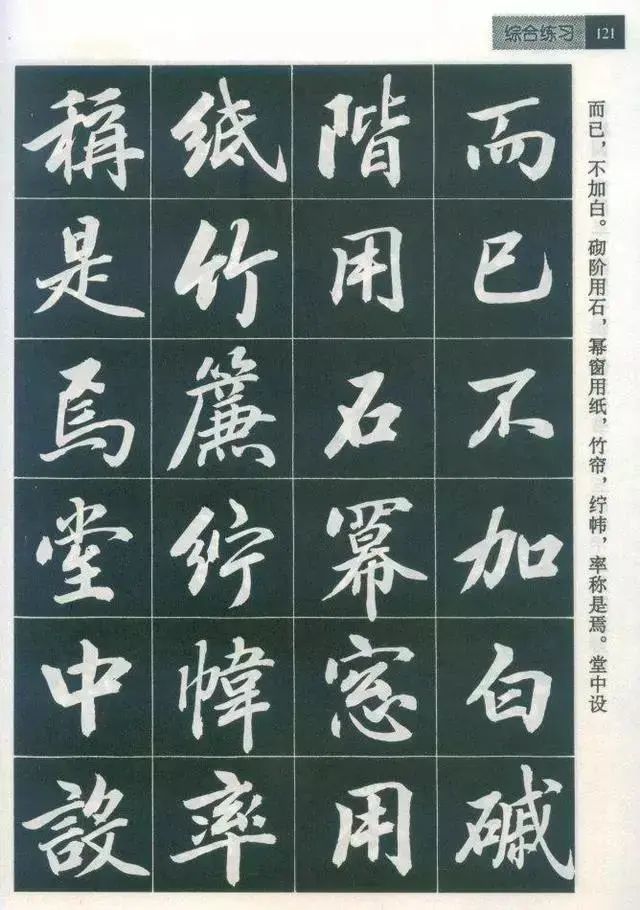 综合练习 121
而已不加白磩
階用石羃窓用
紙竹簾紵幃率
稱是焉堂中設
而已，不加白。砌阶用石，幂窗用纸，竹帘，纻帏，率称是焉。堂中设